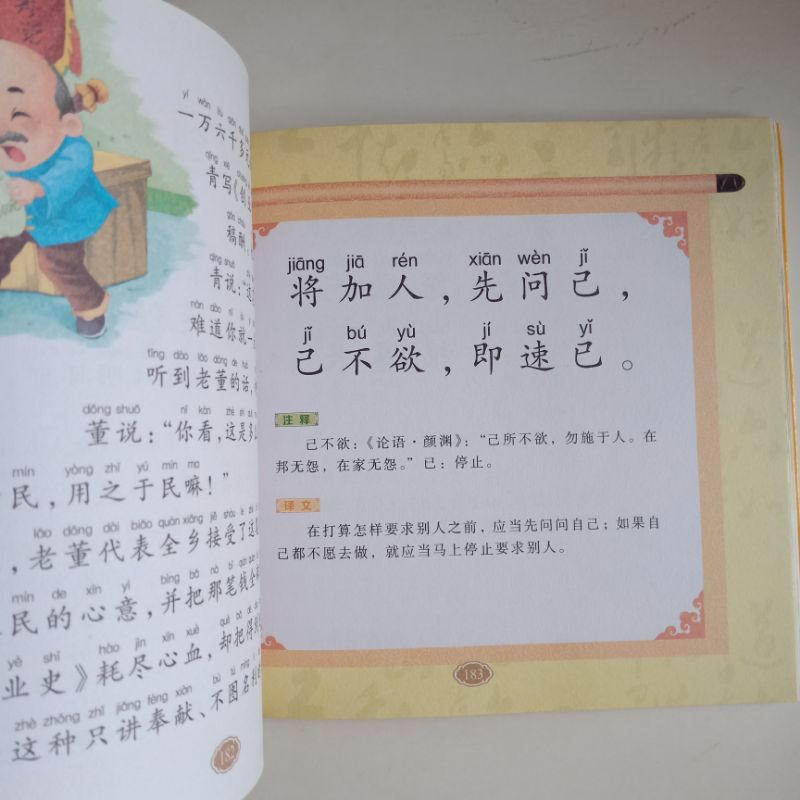 yí wàn liù qiān duō
一万六千多元
qīng xiě
青写《创业
gǎo chóu
稿酬
qīng shuō
青说：“这
nán dào nǐ jiù yī
难道你就一
tīng dào lǎo dǒng de huà
听到老董的话，
dǒng shuō nǐ kàn zhè shì duō
董说：“你看，这是多
mín yòng zhī yú mín ma
民，用之于民嘛！”
lǎo dǒng dài biǎo quán xiāng jiē shòu le zhè
，老董代表全乡接受了这
mín de xīn yì bìng bǎ nà bǐ qián quán
民的心意，并把那笔钱全
yè shǐ hào jìn xīn xuè què bǎ dé
业史》耗尽心血，却把得
zhè zhǒng zhǐ jiǎng fèng xiàn bù tú míng lì
这种只讲奉献、不图名利
182
jiāng jiā rén xiān wèn jǐ
将加人，先问己，
jǐ bú yù jí sù yǐ
己不欲，即速已。
注释
己不欲：《论语·颜渊》：“己所不欲，勿施于人。在
邦无怨，在家无怨。” 已：停止。
译文
在打算怎样要求别人之前，应当先问问自己；如果自
己都不愿去做，就应当马上停止要求别人。
183